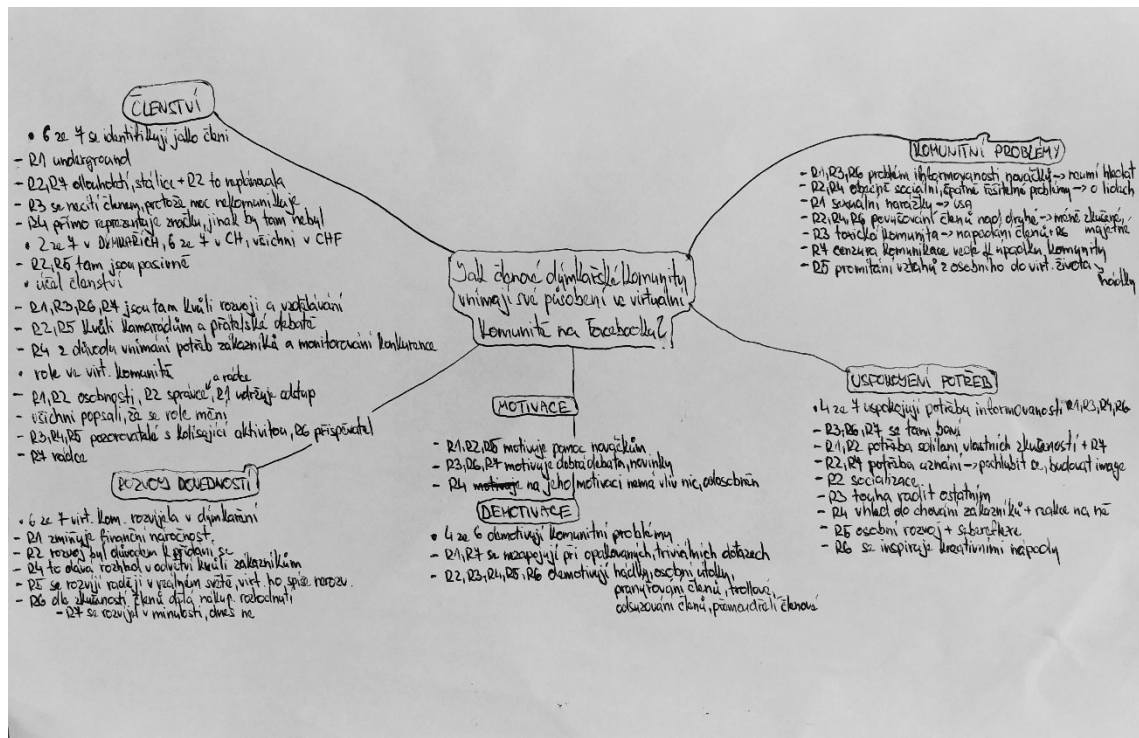 ČLENSTVÍ
• 6 ze 7 se identifikují jako členi
- R1 underground
- R2, R7 dlouholetí, stálice + R2 to neplánovala
- R3 se necítí členem, protože moc nekomunikuje
- R4 přímo reprezentuje značku, jinak by tam nebyl
• 2 ze 7 v DÝMKAŘÍCH, 6 ze 7 v CH, všichni v CHF
- R2, R5 tam jsou pasivně
• účel členství
- R1, R3, R6, R7 jsou tam kvůli rozvoji a vzdělávání
- R2, R5 kvůli kamarádům a přátelské debatě
- R4 z důvodu vnímání potřeb zákazníků a monitorování konkurence
• role ve virt. komunitě
- R1, R2 osobnosti, R2 správce a rádce, R1 udržuje odstup
- všichni popsali, že se role mění
- R3, R4, R5 pozorovatelé s kolísající aktivitou, R6 přispěvatel
- R7 rádce
ROZVOJ DOVEDNOSTÍ
• 6 ze 7 virt. kom. rozvíjela v dýmkaření
- R1 zmiňuje finanční náročnost
- R2 rozvoj byl důvodem k přidání se
- R4 to dává rozhled v odvětví kvůli zákazníkům
- R5 se rozvíjí raději v reálném světě, virt. ho spíše nerozv.
- R6 dle zkušeností členů dělá nákup. rozhodnutí
- R7 se rozvíjel v minulosti, dnes ne
Jak členové dýmkařské komunity
vnímají své působení ve virtuální
komunitě na Facebooku?
MOTIVACE
- R1, R2, R5 motivuje pomoc nováčkům
- R3, R6, R7 motivuje dobrá debata, novinky
- R4 motivuje na jeho motivaci nemá vliv nic, odosobněn
DEMOTIVACE
• 4 ze 6 demotivují komunitní problémy
- R1, R7 se nezapojují při opakovaných, triviálních dotazech
- R2, R3, R4, R5, R6 demotivují hádky, osobní útoky,
pranýřování členů, trollové,
odsuzování členů, přemoudřelí členové
KOMUNITNÍ PROBLÉMY
- R1, R3, R6 problém informovanosti nováčků → neumí hledat
- R2, R4 obecně sociální, špatně řešitelné problémy → o lidech
- R1 sexuální narážky → USA
- R2, R4, R6 povyšování členů nad druhé → méně zkušené,
- R3 toxická komunita → napadání členů + R6 majetné
- R7 cenzura komunikace vede k úpadku komunity
- R5 promítání vztahů z osobního do virt. života → hádky
USPOKOJENÍ POTŘEB
• 4 ze 7 uspokojují potřebu informovanosti R1, R3, R4, R6
- R3, R6, R7 se tam baví
- R1, R2 potřeba sdílení vlastních zkušeností + R7
- R2, R7 potřeba uznání → pochlubit se, budovat image
- R2 socializace
- R3 touha radit ostatním
- R4 vhled do chování zákazníků + reakce na ně
- R5 osobní rozvoj + sebereflexe
- R6 se inspiruje kreativními nápady